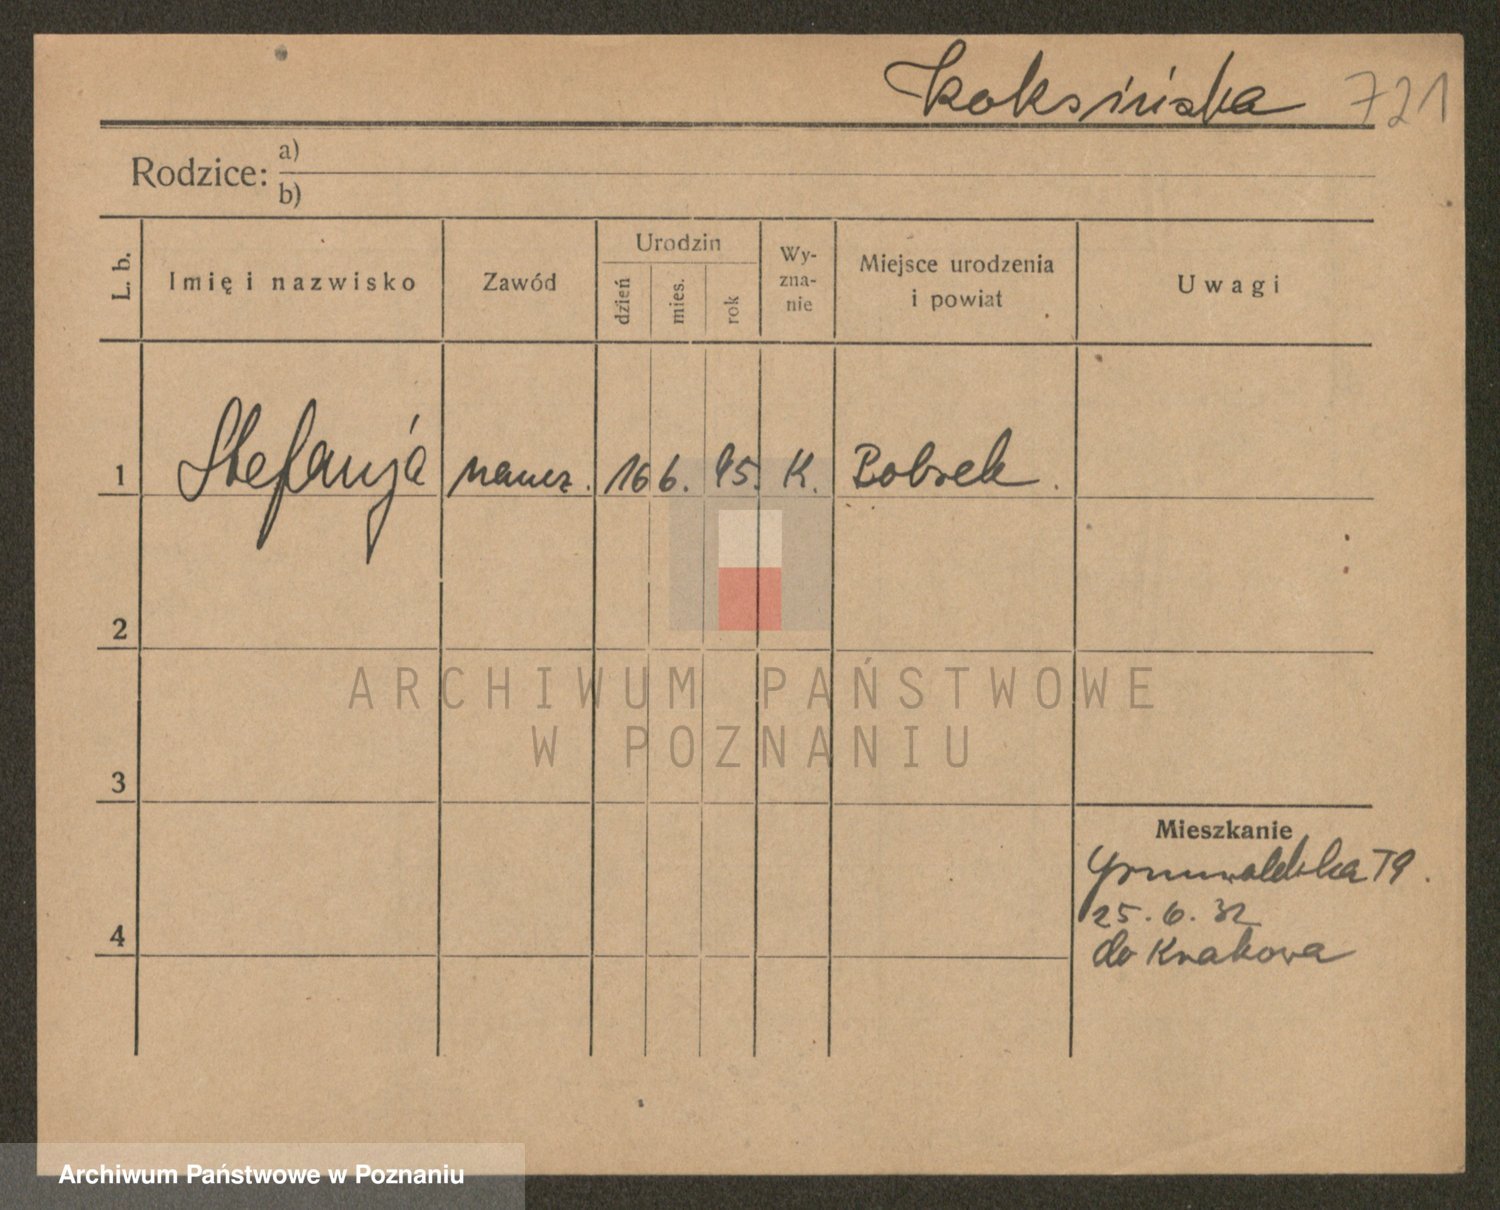 Koksińska 721
Rodzice: a)
b)
L. b.
Imię i nazwisko
Zawód
Urodzin
dzień
mies.
rok
Wy-
zna-
nie
Miejsce urodzenia
i powiat
Uwagi
1 Stefanja naucz. 16 6. 95. K. Bobrek.
2
3
4
Mieszkanie
Grunwaldzka
25. 6. 32
do Krakowa
ARCHIWUM PAŃSTWOWE
W POZNANIU
Archiwum Państwowe w Poznaniu